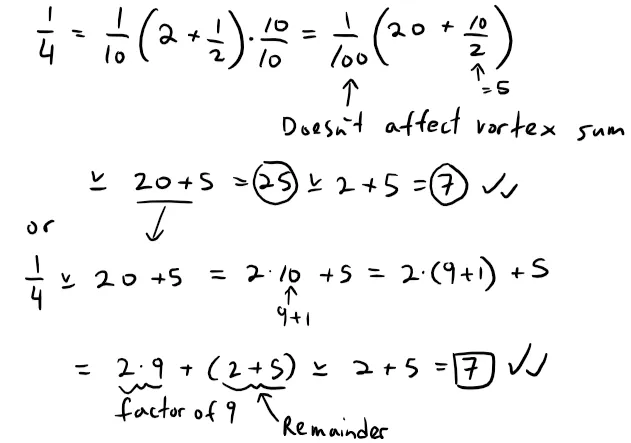 1/4 = 1/10 (2 + 1/2) · 10/10 = 1/100 (20 + 10/2)
↑ ↑ = 5
Doesn't affect vortex sum
⊻ 20 + 5 = 25 ⊻ 2 + 5 = 7 ✓✓
or
1/4 ⊻ 20 + 5 = 2 · 10 + 5 = 2 · (9 + 1) + 5
↑
9 + 1
= 2 · 9 + (2 + 5) ⊻ 2 + 5 = 7 ✓✓
factor of 9 Remainder